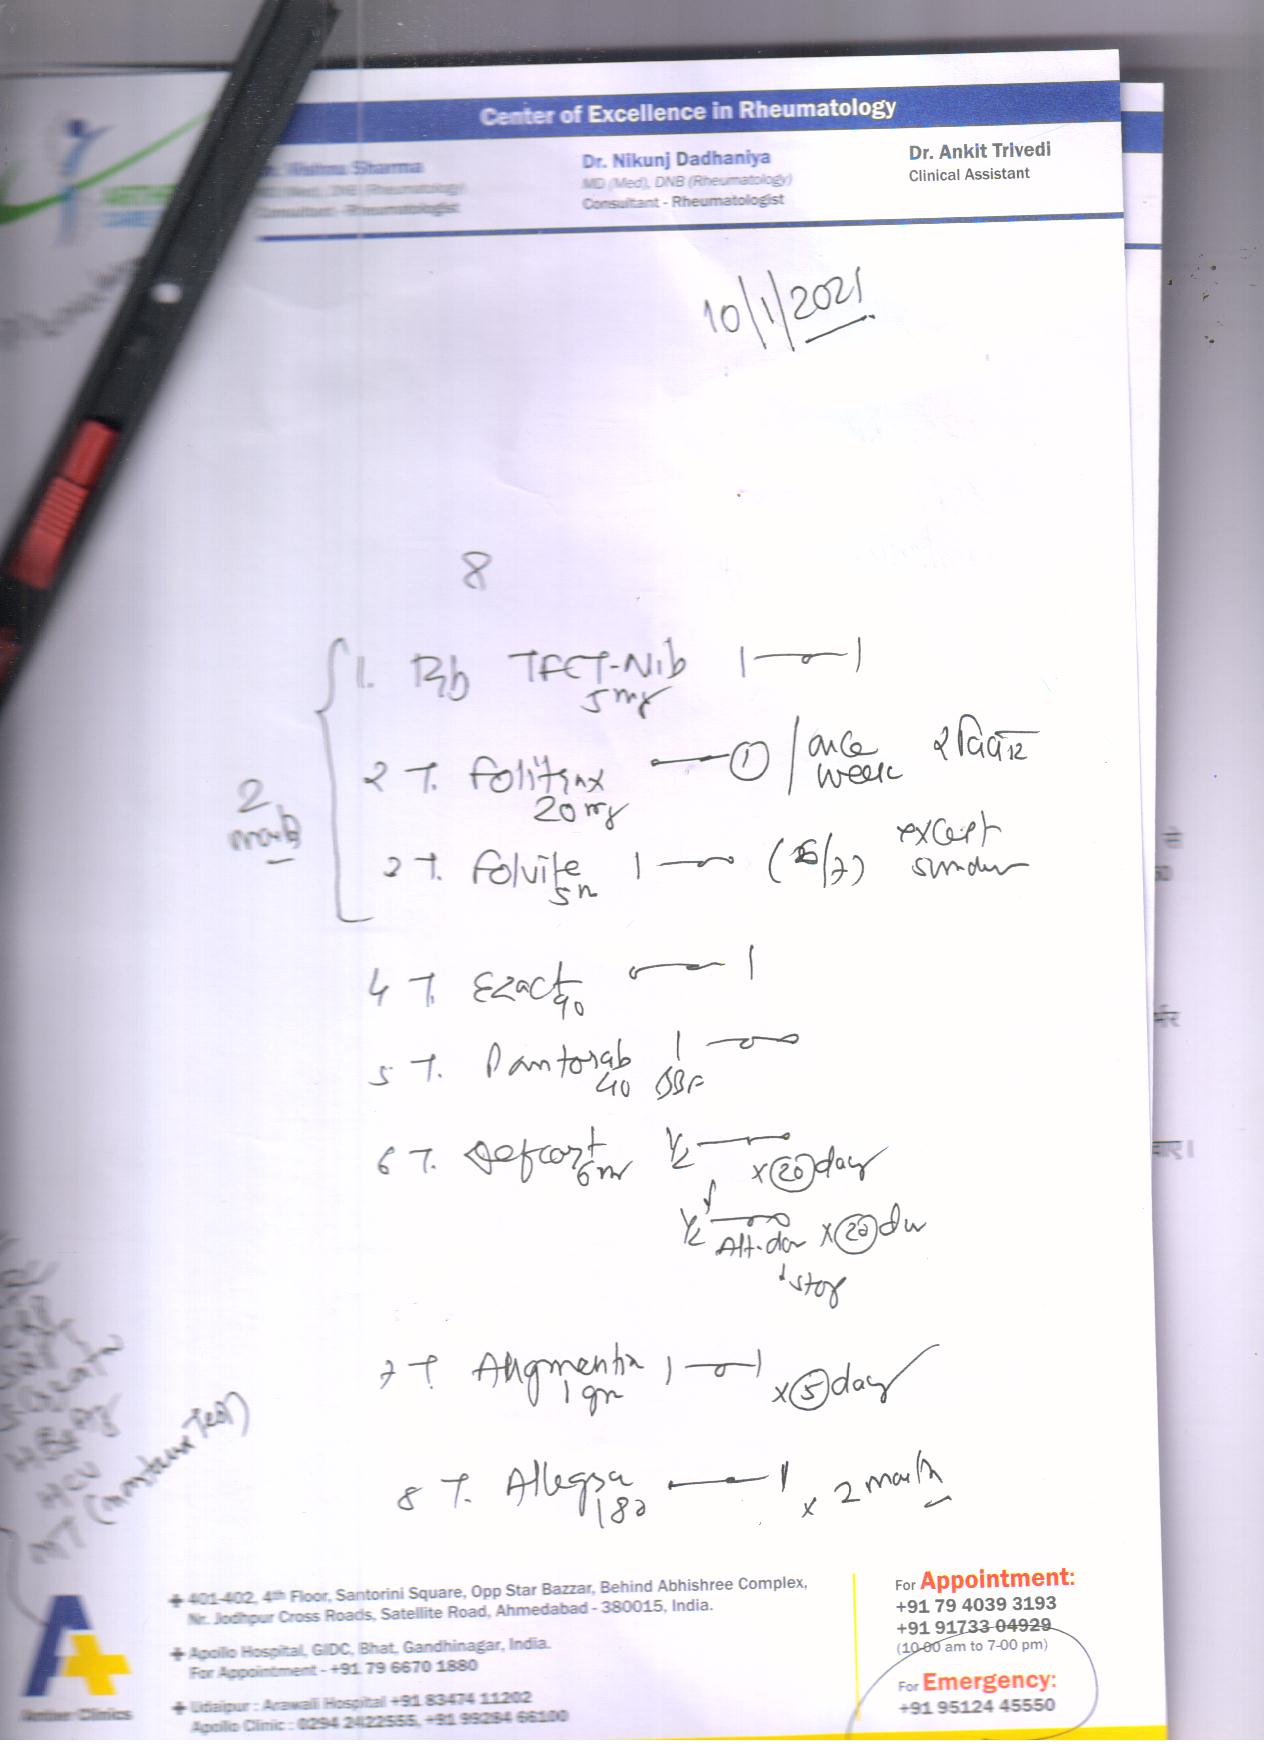 Center of Excellence in Rheumatology
Vishnu Sharma
Dr. Nikunj Dadhaniya
Dr. Ankit Trivedi
DNB (Rheumatology)
MD (Med), DNB (Rheumatology)
Clinical Assistant
Consultant - Rheumatologist
Consultant - Rheumatologist
10/1/2021
8
1. TFCT-Nib 1—o—1
5 mg
2 T. Folitrax — 1 / once week
20 mg
2 T. Folvite 1 —o (6/7) except sunday
5
4 T. Ezact o— 1
90
5 T. Pantorab 1 —o—o
40 BBF
6 T. Defcort 1/2 — x 20 day
6
1/2 Alt. day x 20
stop
7 T. Augmentin 1—o—1 x 5 day
1 gm
8 T. Allegra — 1 x 2 month
180
2
month
HCV
MT (montoux Test)
401-402, 4th Floor, Santorini Square, Opp Star Bazzar, Behind Abhishree Complex,
Nr. Jodhpur Cross Roads, Satellite Road, Ahmedabad - 380015, India.
Apollo Hospital, GIDC, Bhat, Gandhinagar, India.
For Appointment - +91 79 6670 1880
Udaipur : Arawali Hospital +91 83474 11202
Apollo Clinic : 0294 2422555, +91 99284 66100
For Appointment:
+91 79 4039 3193
+91 91733 04929
(10-00 am to 7-00 pm)
For Emergency:
+91 95124 45550